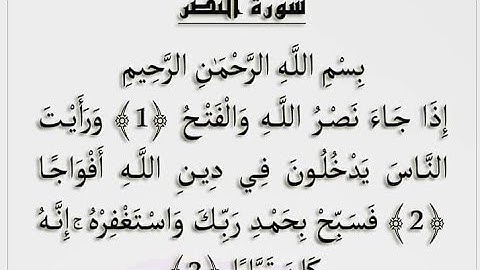 سورة النصر
بِسْمِ اللَّهِ الرَّحْمَٰنِ الرَّحِيمِ
إِذَا جَاءَ نَصْرُ اللَّهِ وَالْفَتْحُ ﴿1﴾ وَرَأَيْتَ
النَّاسَ يَدْخُلُونَ فِي دِينِ اللَّهِ أَفْوَاجًا
﴿2﴾ فَسَبِّحْ بِحَمْدِ رَبِّكَ وَاسْتَغْفِرْهُ ۚ إِنَّهُ
كَانَ تَوَّابًا ﴿3﴾